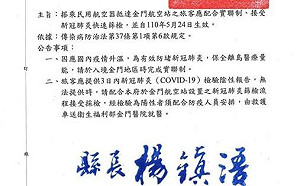 主旨：搭乘民用航空器抵達金門航空站之旅客應配合實聯制、接受
新冠肺炎快速篩檢，並自110年5月24日生效。
依據：傳染病防治法第37條第1項第6款規定。
公告事項：
一、因應國內疫情升溫，為有效防堵新冠肺炎，保全離島醫療量
能，請於入境金門地區時完成實聯制。
二、旅客應提供3日內新冠肺炎（COVID-19）檢驗陰性報告，無
法提供時，請配合本府於金門航空站設置之新冠肺炎篩檢流
程接受採檢，經檢驗為陽性者須配合防疫人員安排，由救護
車送衛生福利部金門醫院就醫。
縣長楊鎮浯